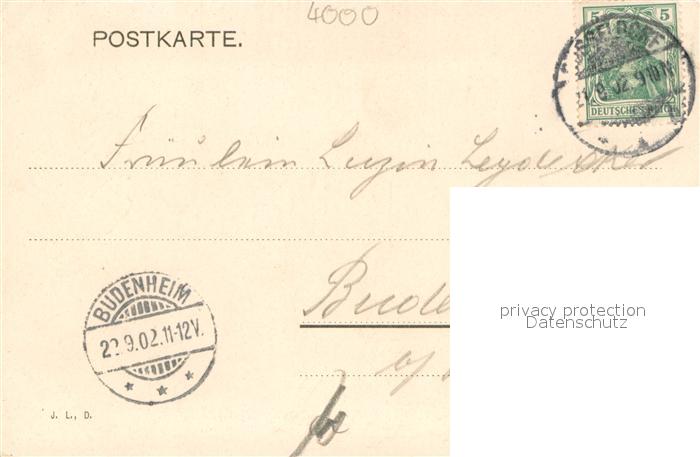 4000
POSTKARTE.
5 5
DEUTSCHES REICH
Fräulein Luzin Leydecker
BUDENHEIM
22.9.02.11-12V.
Bude
privacy protection
Datenschutz
a/
J. L., D.